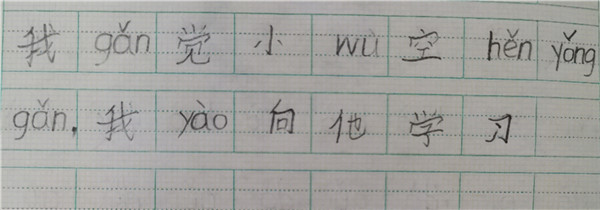 我 gǎn 觉 小 wù 空 hěn yǒng
gǎn, 我 yào 向 他 学 习